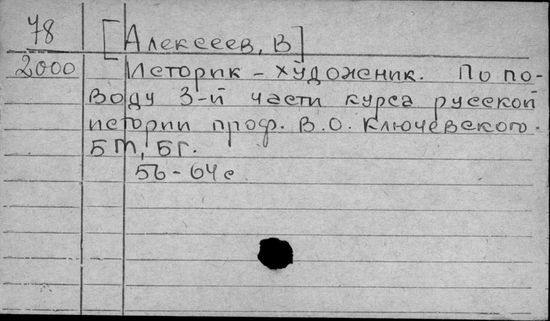 78 [Алексеев, В]
2000 Историк - художник. По по-
воду 3-й части курса русской
истории проф. В.О. Ключевского.
БМ, БГ.
56-64с